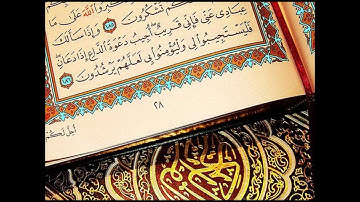 ـبروا الله على ما
ـكم تشكرون ١٨٥ وإذا سألك
عبادي عني فإني قريب أجيب دعوة الداع إذا دعان
فليستجيبوا لي وليؤمنوا بي لعلهم يرشدون ١٨٦
٢٨
أحل لكم